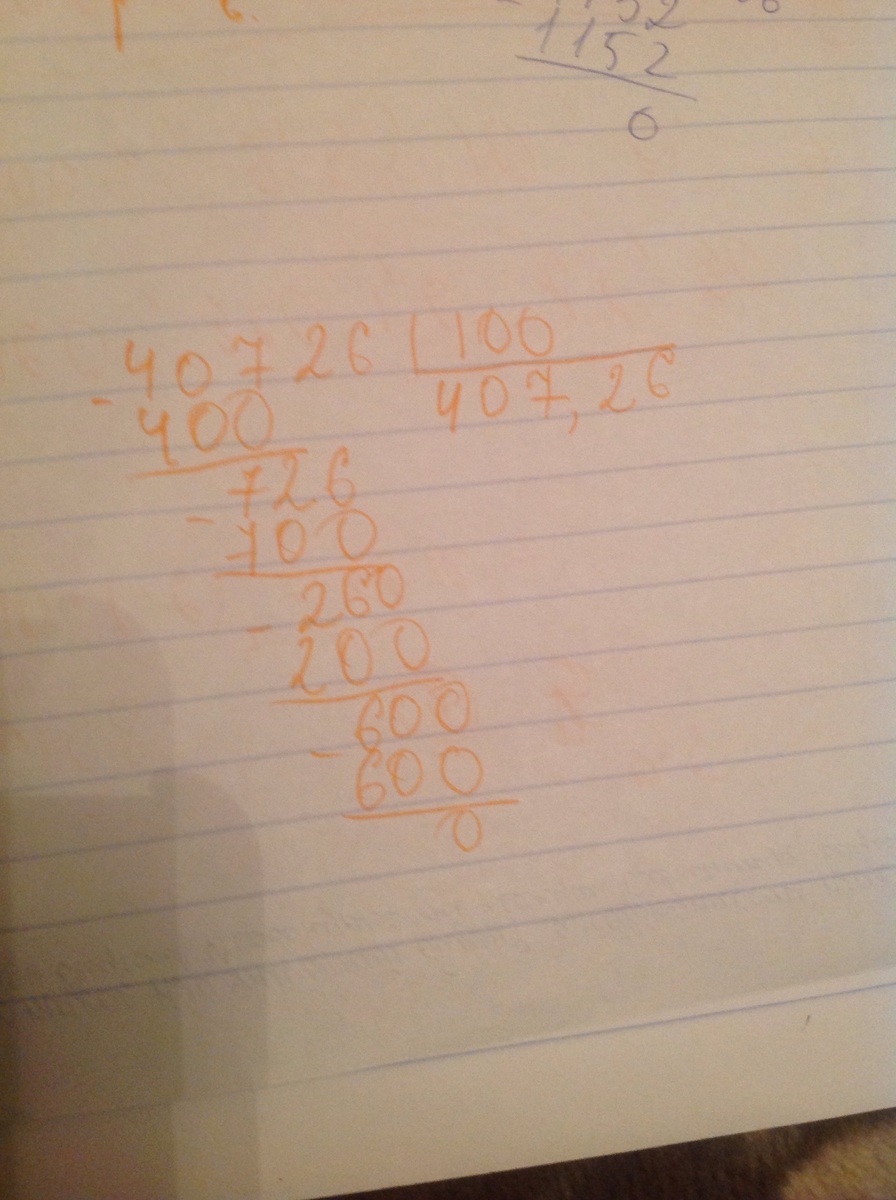 1152
0
40726 100
- 400 407,26
726
- 700
260
- 200
600
- 600
0